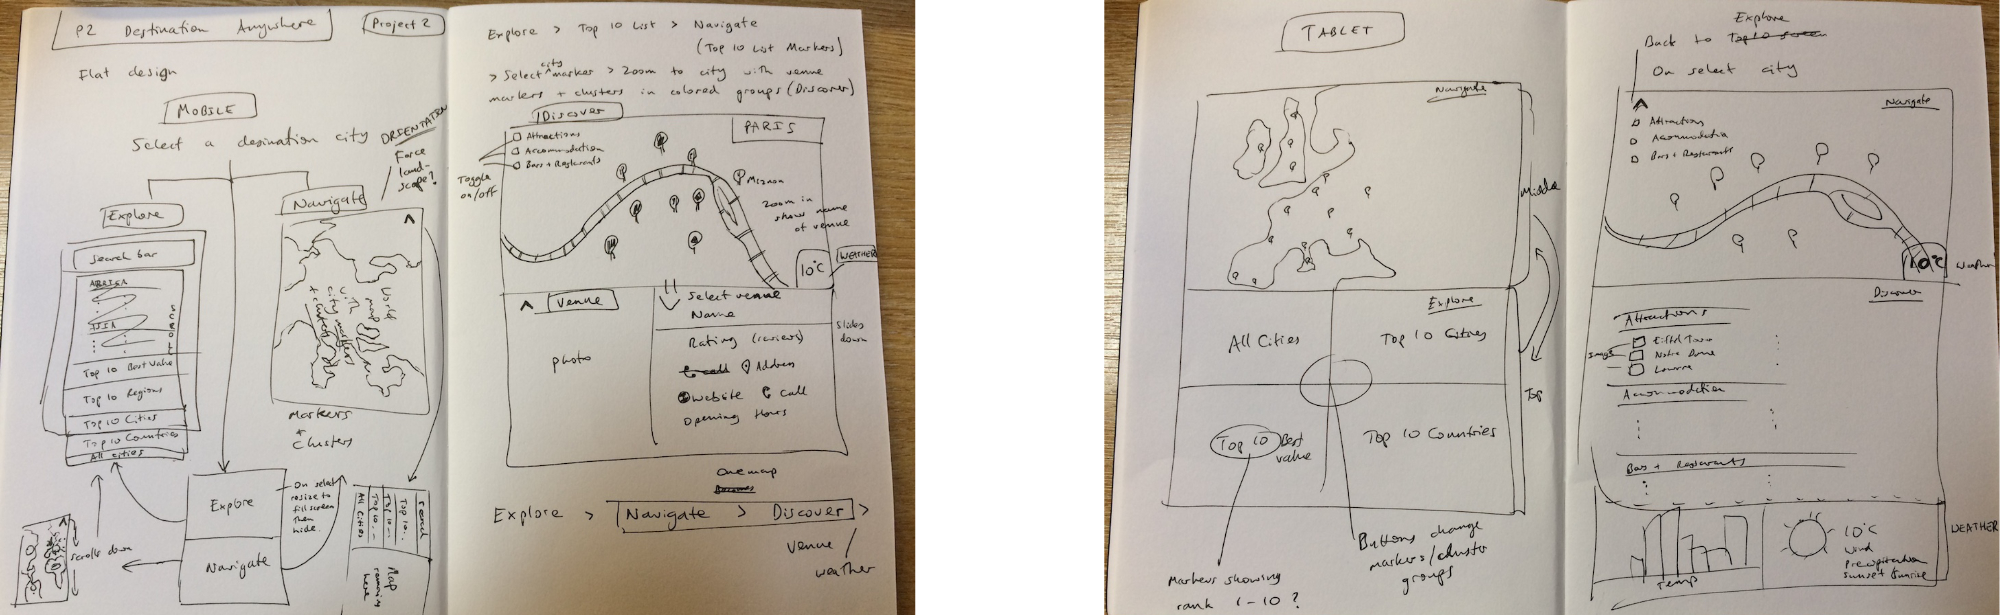 P2 Destination Anywhere
Project 2
Flat design
MOBILE
Select a desination city
ORIENTATION
Force
land-
scope?
Explore
Search bar
AFRICA
ASIA
SCROLL
Top 10 Best Value
Top 10 Regions
Top 10 Cities
Top 10 Countries
All cities
Navigate
World
map
with
city markers
+ clusters
Markers
+
clusters
Explore
Navigate
On select
resize to
fill screen
then
hide.
scrolls down
Search
Top 10..
Top 10...
Top 10...
All Cities
Map
remaining
here
Explore > Top 10 List > Navigate
(Top 10 List Markers)
> Select city marker > Zoom to city with venue
markers + clusters in colored groups (Discover)
Discover
Attractions
Accommodation
Bars + Restaurants
Toggle
on/off
PARIS
Zoom in
show name
of venue
10°C
WEATHER
Venue
photo
Select venue
Name
Rating (reviews)
Address
Website
Call
Opening Hours
Slides
down
One map
Explore > Navigate > Discover >
Venue
weather
TABLET
Navigate
Middle
Explore
All Cities
Top 10 Cities
Top 10 Best
value
Top 10 Countries
Top
Markers showing
rank 1-10?
Buttons change
markers/cluster
groups
Explore
Back to Top 10 screen
On select city
Navigate
Attractions
Accommodation
Bars + Restaurants
10°C
Weather
Discover
Attractions
Images
Eiffel Tower
Notre Dame
Louvre
Accommodation
Bars + Restaurants
Temp
10°C
Wind
Precipitation
Sunset + Sunrise
WEATHER